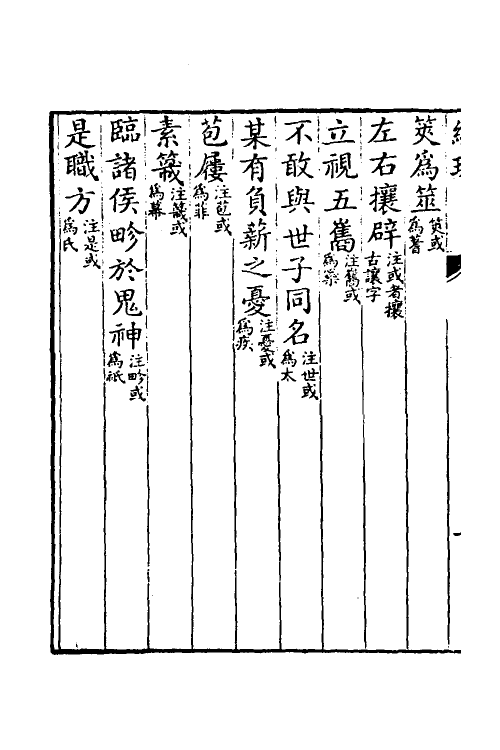 筴爲筮筴或爲蓍
左右攘辟注或者攘古讓字
立視五巂注巂或爲繠
不敢與世子同名注世或爲太
某有負薪之憂注憂或爲疾
苞屨注苞或爲菲
素簚注簚或爲幕
臨諸侯畛於鬼神注畛或爲祇
是職方注是或爲氏